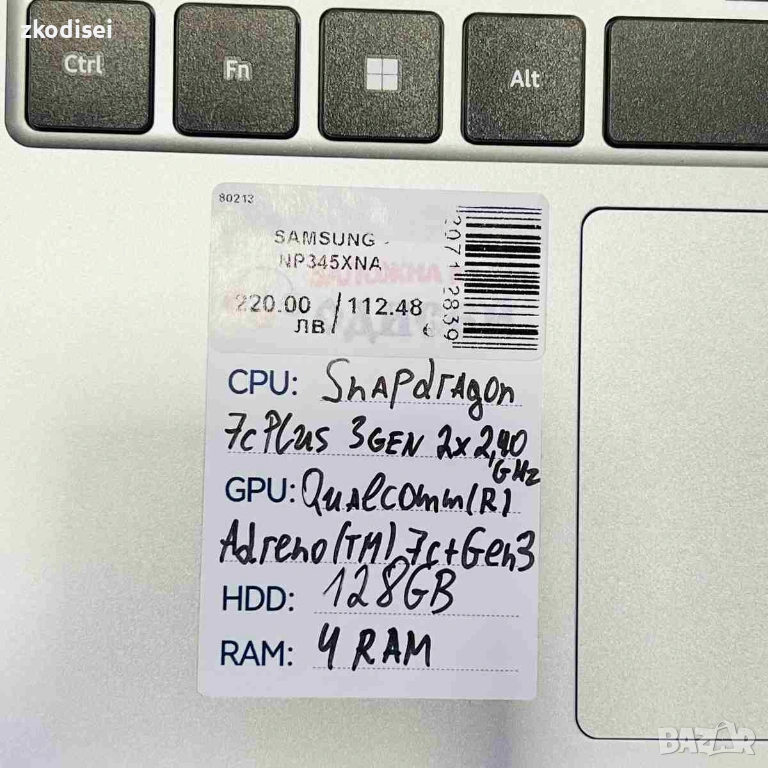 zkodisei
Ctrl
Fn
Alt
80213
SAMSUNG -
NP345XNA
220.00 / 112.48
ЛВ / €
CPU: Snapdragon
7c Plus 3GEN 2x2,40
GHz
GPU: Qualcomm(R)
Adreno(TM) 7c+Gen3
HDD: 128GB
RAM: 4 RAM
BAZAR